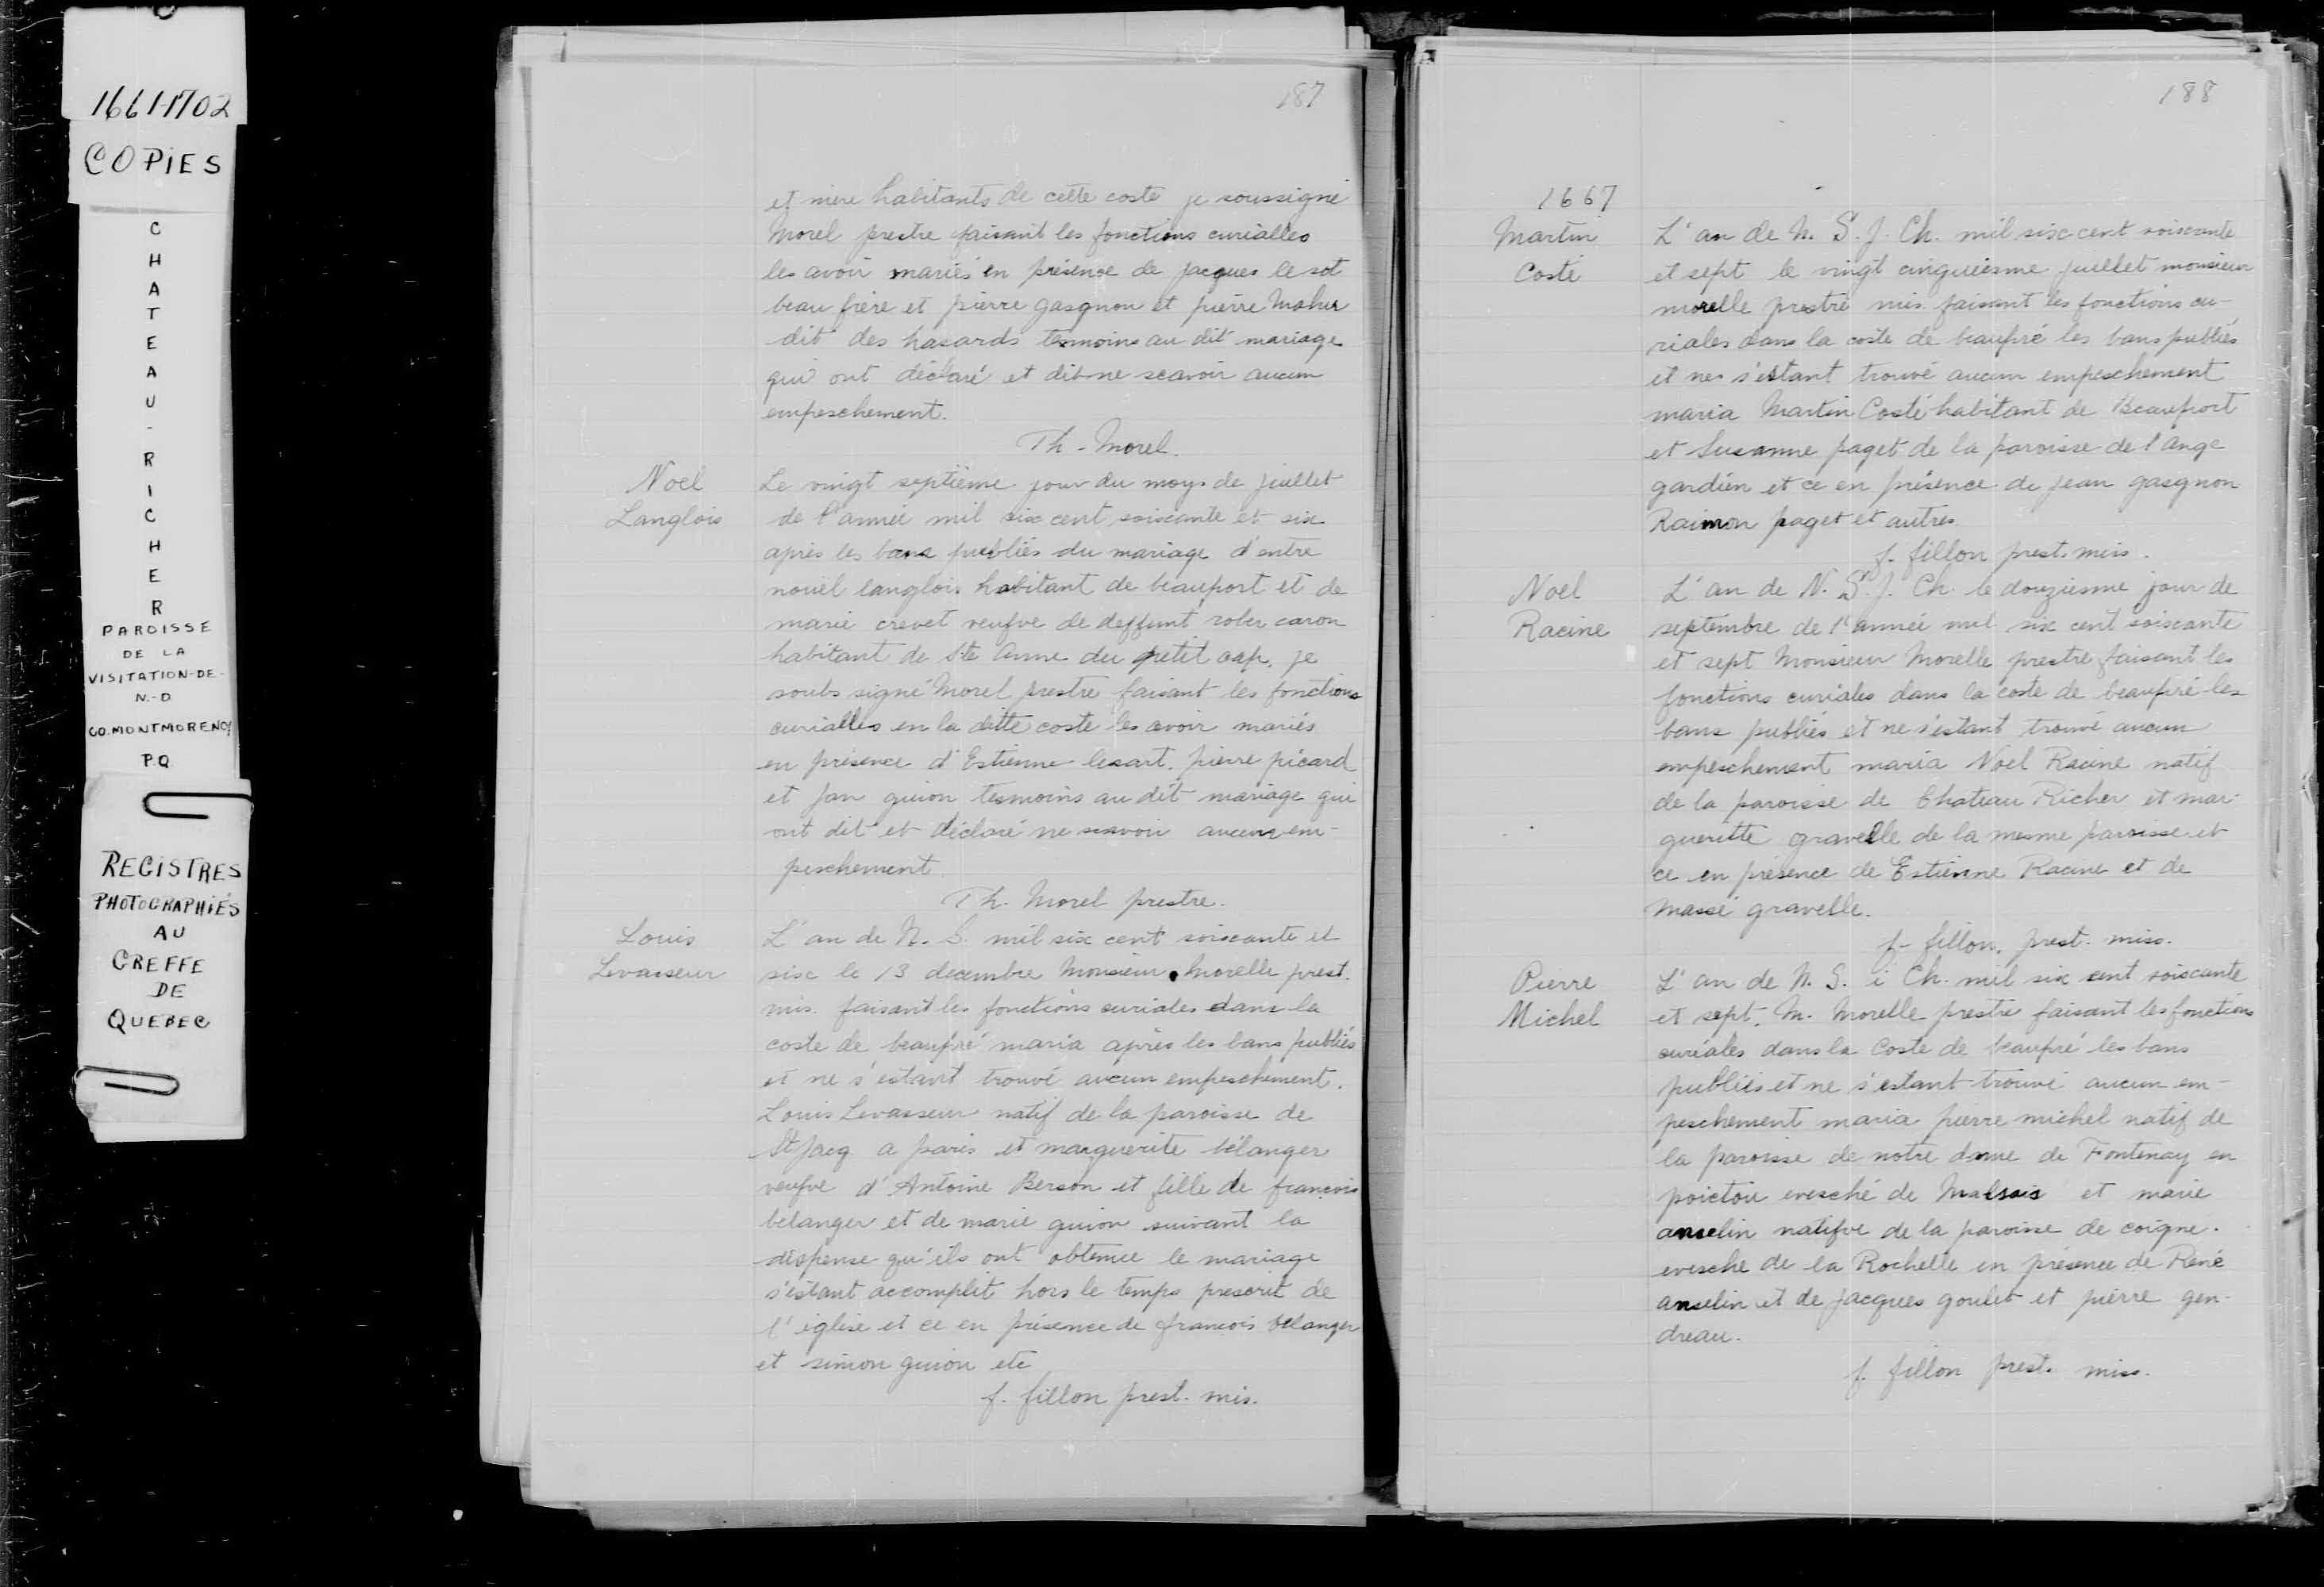 1661-1702
COPIES
CHATEAU-RICHER
PAROISSE
DE LA
VISITATION-DE-
N.-D
CO.MONTMORENCY
P.Q
REGISTRES
PHOTOGRAPHIÉS
AU
GREFFE
DE
QUEBEC
187
et mère habitants de cette coste je soussigné
Morel prestre faisant les fonctions curialles
les avoir mariés en présence de jacques le sot
beau frère et pierre gasgnon et pierre Maheu
dit des hasards tesmoins au dit mariage
qui ont déclaré et dit ne scavoir aucun
empeschement.
Th - Morel.
Noel
Langlois
Le vingt septième jour du moys de juillet
de l'année mil six cent soixante et six
après les bans publiés du mariage d'entre
nouël langlois habitant de beauport et de
marie crevet veufve de deffunt rober caron
habitant de Ste Anne du petit cap, je
soubs signé Morel prestre faisant les fonctions
curialles en la ditte coste les avoir mariés
en présence d'Estienne lesart. pierre picard
et jan guion tesmoins au dit mariage qui
ont dit et déclaré ne scavoir aucun em-
peschement
Th. Morel prestre.
Louis
Levasseur
L'an de N. S. mil six cent soixante et
six le 13 decembre Monsieur Morelle prest.
mis. faisant les fonctions curiales dans la
coste de beaupré maria après les bans publiés
et ne s'estant trouvé aucun empeschement.
Louis Levasseur natif de la paroisse de
St Jacq a paris et marguerite bélanger
veufve d'Antoine Berson et fille de françois
belanger et de marie guion suivant la
dispense qu'ils ont obtenue le mariage
s'éstant accomplit hors le temps prescrit de
l'église et ce en présence de francois belanger
et simon guion etc
f. fillon prest. mis.
188
1667
Martin
Costé
L'an de N. S. J. Ch. mil six cent soixante
et sept le vingt cinquiesme juillet monsieur
morelle prestre mis faisant les fonctions cu-
riales dans la coste de beaupré les bans publiés
et ne s'estant trouvé aucun empeschement
maria Martin Costé habitant de Beauport
et Susanne paget de la paroisse de l'Ange
gardien et ce en présence de jean gasgnon
Raimon paget et autres
f. fillon prest. miss.
Noel
Racine
L'an de N. S. J. Ch. le douziesme jour de
septembre de l'année mil six cent soixante
et sept Monsieur Morelle prestre faisant les
fonctions curiales dans la coste de beaupré les
bans publiés et ne s'estant trouvé aucun
empeschement maria Noel Racine natif
de la paroisse de Chateau Richer et mar-
gueritte gravelle de la mesme paroisse et
ce en présence de Estienne Racine et de
massé gravelle.
f- fillon. prest. miss.
Pierre
Michel
L'an de N. S. i Ch. mil six cent soixante
et sept, M. Morelle prestre faisant les fonctions
curéales dans la Coste de beaupré les bans
publiés et ne s'estant trouvé aucun em-
peschement maria pierre michel natif de
la paroisse de notre dame de Fontenay en
poictou evesché de Malsais et marie
anselin natifve de la paroisse de coigne.
evesche de la Rochelle en présence de René
anselin et de jacques goulet et pierre gen-
dreau.
f. fillon prest. miss.